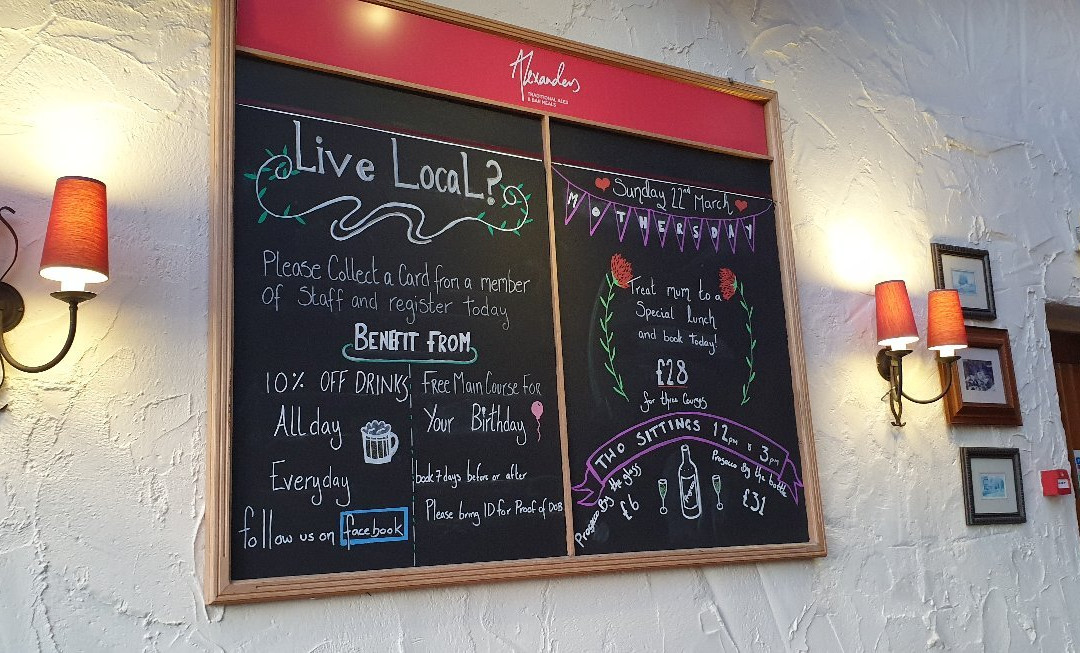 Alexanders
TRADITIONAL ALES
& BAR MEALS
Live Local?
Please Collect a Card from a member
of Staff and register Today
BENEFIT FROM
10% OFF DRINKS
All day
Everyday
follow us on facebook
Free Main Course For
Your Birthday
book 7 days before or after
Please bring ID for Proof of DOB
Sunday 22nd March
MOTHERSDAY
Treat mum to a
Special lunch
and book today!
£28
for three Courses
TWO SITTINGS 12pm & 3pm
Prosecco By the glass
£6
Prosecco By the bottle
£31